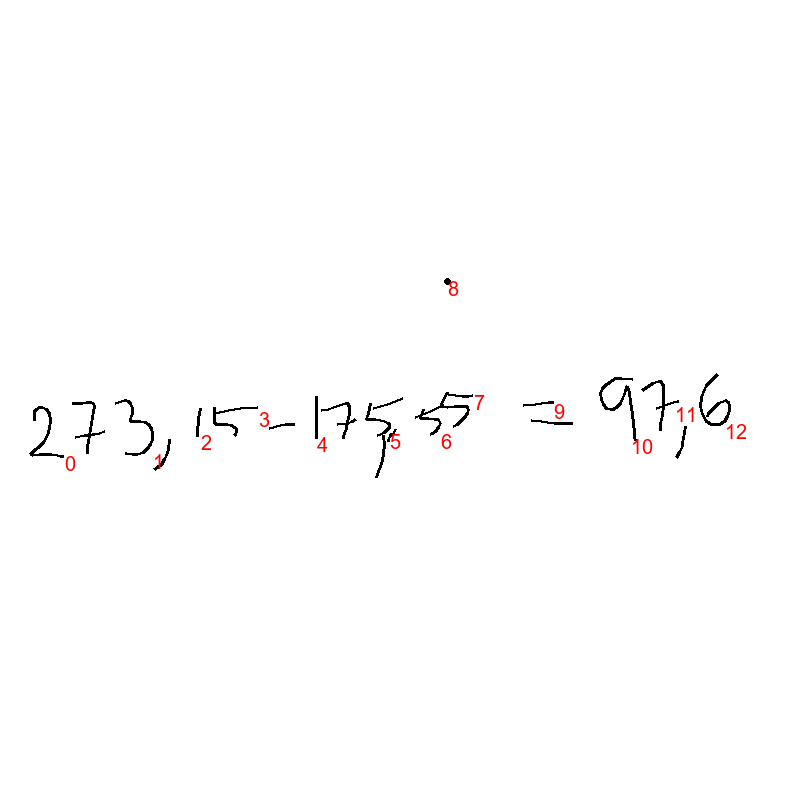 273,15-175,55 = 97,6
0 1 2 3 4 5 6 7 8 9 10 11 12